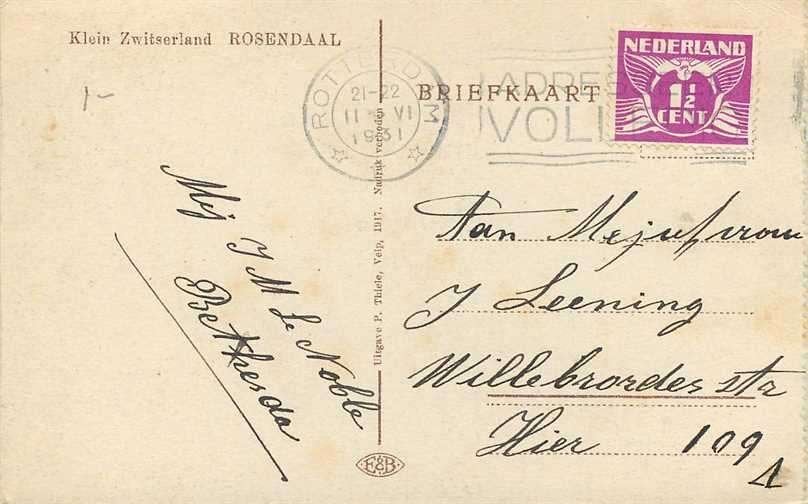 Klein Zwitserland ROSENDAAL
1-
ROTTERDAM
21-22
11 VI
1931
BRIEFKAART
ADRES
VOLL
NEDERLAND
1½
CENT
Mej J M Le Noble
Bethesda
Uitgave P. Thiele, Velp, 1917. Nadruk verboden
E&B
Aan Mejufvrouw
J Leening
Willebrordes str
Hier 109